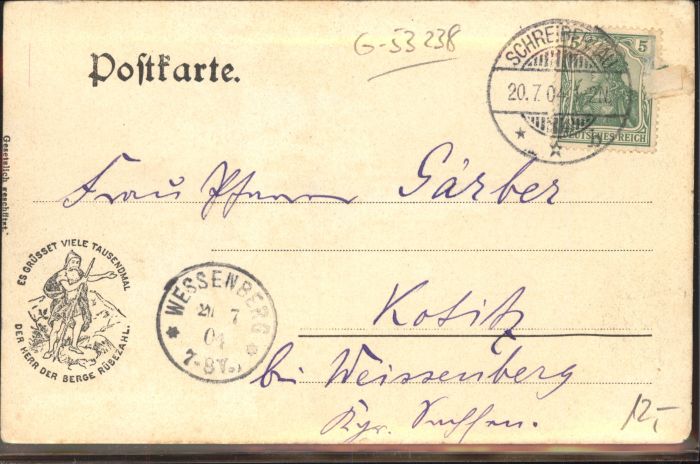 G-53238
Postkarte.
SCHREIBERHAU
20.7.04
5
DEUTSCHES REICH
Gesetzlich geschützt.
Frau Pfarrer Gärber
ES GRÜSSET VIELE TAUSENDMAL
DER HERR DER BERGE RÜBEZAHL.
WESSENBERG
21 7
04
7-8V.
Kotitz
bei Weissenberg
Kgr. Sachsen.
12,-